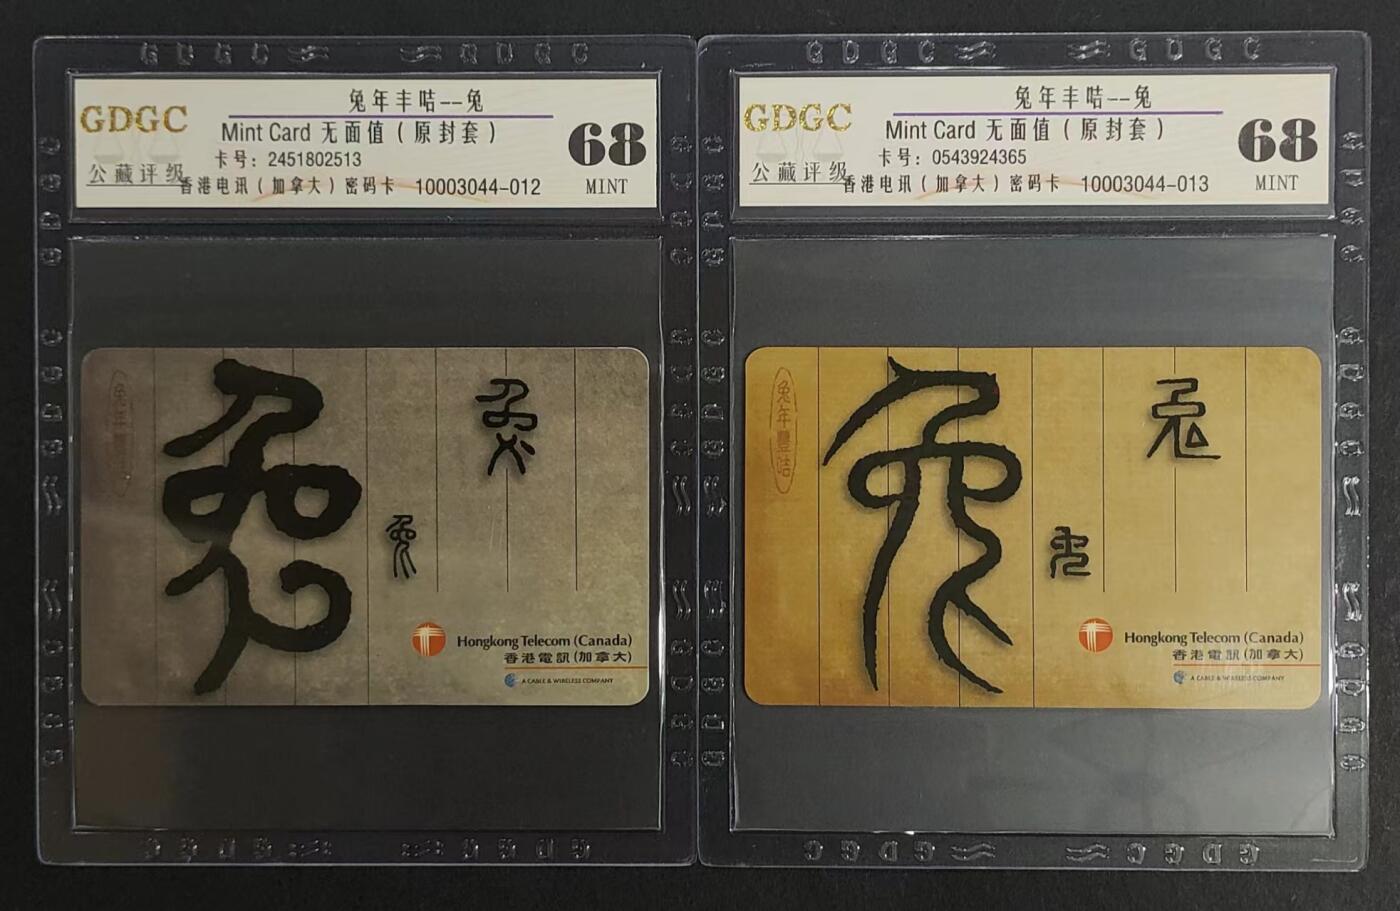 GDGC
公藏评级
兔年丰咭--兔
Mint Card 无面值(原封套)
卡号: 2451802513
香港电讯(加拿大)密码卡 10003044-012
68
MINT
兔年豐咭
兔
兔
兔
Hongkong Telecom (Canada)
香港電訊(加拿大)
A CABLE & WIRELESS COMPANY
GDGC
公藏评级
兔年丰咭--兔
Mint Card 无面值(原封套)
卡号: 0543924365
香港电讯(加拿大)密码卡 10003044-013
68
MINT
兔年豐咭
兔
兔
兔
Hongkong Telecom (Canada)
香港電訊(加拿大)
A CABLE & WIRELESS COMPANY